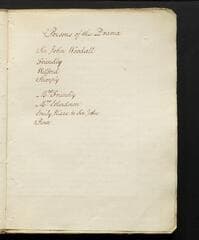 Persons of the Drama
Sir John Woodall
Friendly
Wilford
Sharply
Mrs Friendly
Mrs
Emily Niece to Sir John